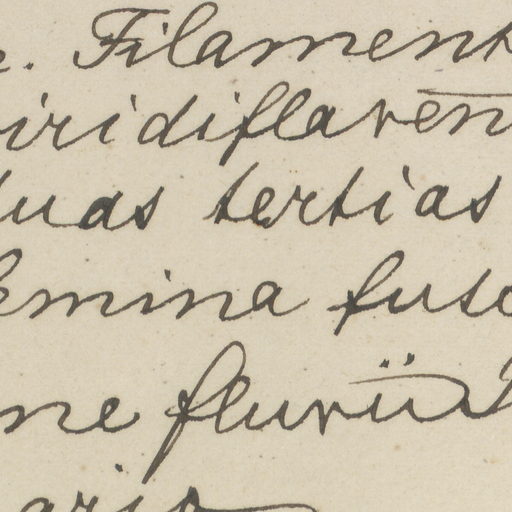 . Filament
iridiflaven
duas tertias
emina fusc
ne fluvii
aris